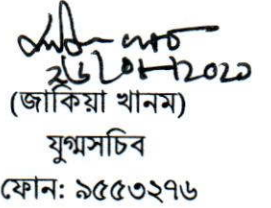 (জাকিয়া খানম)
যুগ্মসচিব
ফোন: ৯৫৫৩২৭৬